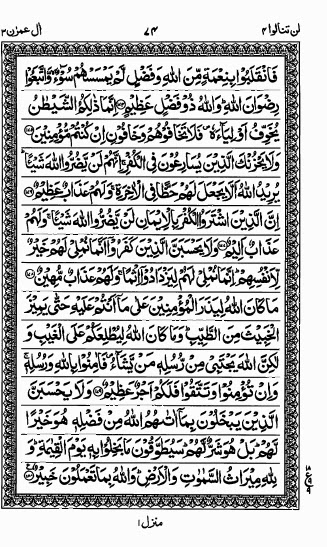 لن تنالوا ٤ ٧٤ ال عمرٰن ٣
فَانْقَلَبُوْا بِنِعْمَةٍ مِّنَ اللّٰهِ وَفَضْلٍ لَّمْ يَمْسَسْهُمْ سُوْٓءٌ ۙ وَّاتَّبَعُوْا
رِضْوَانَ اللّٰهِ ؕ وَاللّٰهُ ذُوْ فَضْلٍ عَظِيْمٍ ﴿۱۷۴﴾ اِنَّمَا ذٰلِكُمُ الشَّيْطٰنُ
يُخَوِّفُ اَوْلِيَآءَهٗ ۪ فَلَا تَخَافُوْهُمْ وَخَافُوْنِ اِنْ كُنْتُمْ مُّؤْمِنِيْنَ ﴿۱۷۵﴾
وَلَا يَحْزُنْكَ الَّذِيْنَ يُسَارِعُوْنَ فِى الْكُفْرِ ۚ اِنَّهُمْ لَنْ يَّضُرُّوا اللّٰهَ شَيْـًٔا ؕ
يُرِيْدُ اللّٰهُ اَلَّا يَجْعَلَ لَهُمْ حَظًّا فِى الْاٰخِرَةِ ۚ وَلَهُمْ عَذَابٌ عَظِيْمٌ ﴿۱۷۶﴾
اِنَّ الَّذِيْنَ اشْتَرَوُا الْكُفْرَ بِالْاِيْمَانِ لَنْ يَّضُرُّوا اللّٰهَ شَيْـًٔا ۚ وَلَهُمْ
عَذَابٌ اَلِيْمٌ ﴿۱۷۷﴾ وَلَا يَحْسَبَنَّ الَّذِيْنَ كَفَرُوْۤا اَنَّمَا نُمْلِىْ لَهُمْ خَيْرٌ
لِّاَنْفُسِهِمْ ؕ اِنَّمَا نُمْلِىْ لَهُمْ لِيَزْدَادُوْۤا اِثْمًا ۚ وَلَهُمْ عَذَابٌ مُّهِيْنٌ ﴿۱۷۸﴾
مَا كَانَ اللّٰهُ لِيَذَرَ الْمُؤْمِنِيْنَ عَلٰى مَاۤ اَنْتُمْ عَلَيْهِ حَتّٰى يَمِيْزَ
الْخَبِيْثَ مِنَ الطَّيِّبِ ؕ وَمَا كَانَ اللّٰهُ لِيُطْلِعَكُمْ عَلَى الْغَيْبِ وَ
لٰكِنَّ اللّٰهَ يَجْتَبِىْ مِنْ رُّسُلِهٖ مَنْ يَّشَآءُ ۪ فَاٰمِنُوْا بِاللّٰهِ وَرُسُلِهٖ ۚ
وَاِنْ تُؤْمِنُوْا وَتَتَّقُوْا فَلَكُمْ اَجْرٌ عَظِيْمٌ ﴿۱۷۹﴾ وَلَا يَحْسَبَنَّ
الَّذِيْنَ يَبْخَلُوْنَ بِمَاۤ اٰتٰىهُمُ اللّٰهُ مِنْ فَضْلِهٖ هُوَ خَيْرًا
لَّهُمْ ؕ بَلْ هُوَ شَرٌّ لَّهُمْ ؕ سَيُطَوَّقُوْنَ مَا بَخِلُوْا بِهٖ يَوْمَ الْقِيٰمَةِ ؕ وَ
لِلّٰهِ مِيْرَاثُ السَّمٰوٰتِ وَالْاَرْضِ ؕ وَاللّٰهُ بِمَا تَعْمَلُوْنَ خَبِيْرٌ ﴿۱۸۰﴾
منزل ۱